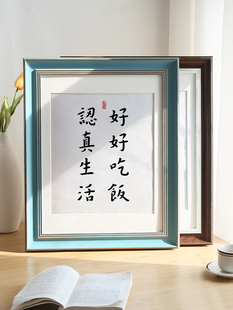 好好吃飯
認真生活